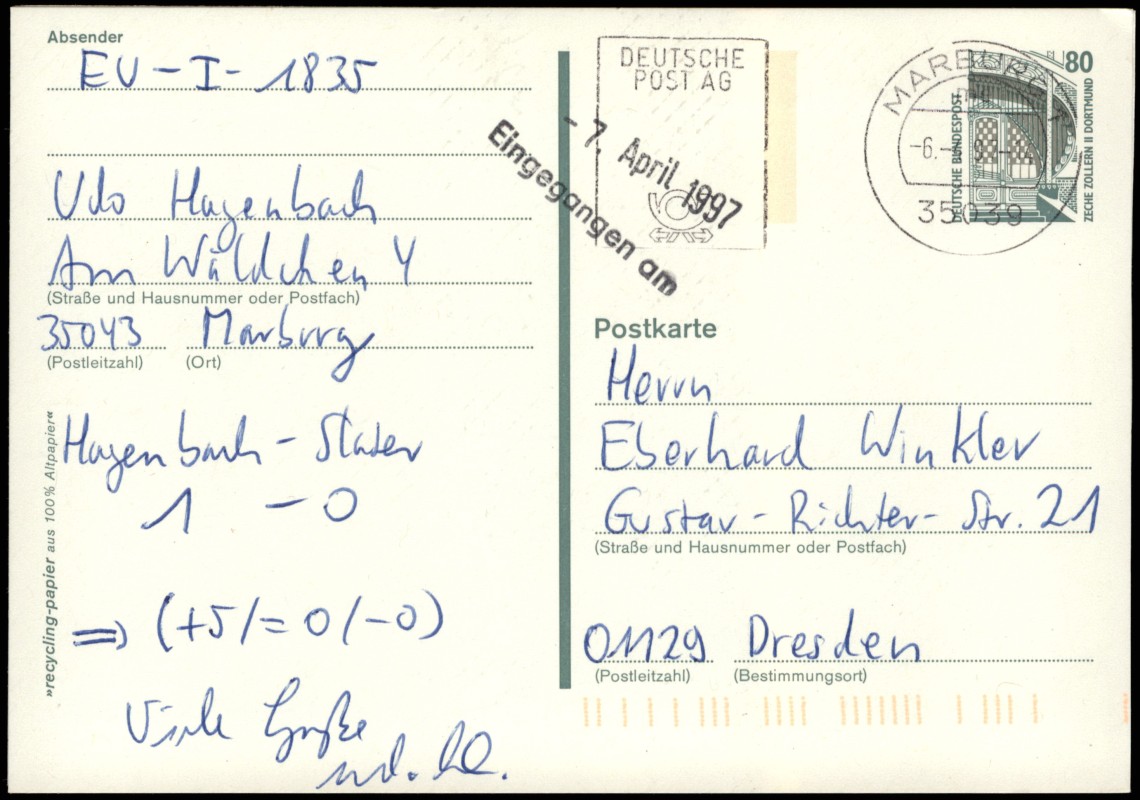 Absender
EU-I-1835
Udo Hagenbach
Am Wäldchen 4
(Straße und Hausnummer oder Postfach)
35043 Marburg
(Postleitzahl) (Ort)
»recycling-papier aus 100% Altpapier«
Hagenbach - Stader
1 - 0
⇒ (+5/=0/-0)
Viele Grüße
DEUTSCHE
POST AG
- 7. April 1997
Eingegangen am
MARBURG 1
mc
-6.-4.9
35039
80
DEUTSCHE BUNDESPOST
ZECHE ZOLLERN II DORTMUND
Postkarte
Herrn
Eberhard Winkler
Gustav-Richter-Str. 21
(Straße und Hausnummer oder Postfach)
01129 Dresden
(Postleitzahl) (Bestimmungsort)